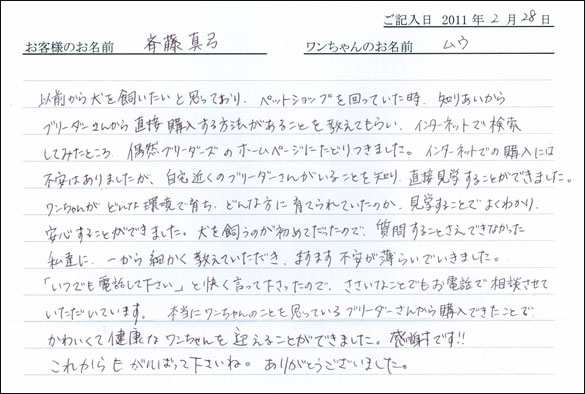 ご記入日 2011年2月28日
お客様のお名前 斉藤真弓 ワンちゃんのお名前 ムウ
以前から犬を飼いたいと思っており、ペットショップを回っていた時、知りあいから
ブリーダーさんから直接購入する方法があることを教えてもらい、インターネットで検索
してみたところ、偶然ブリーダーズのホームページにたどりつきました。インターネットでの購入には
不安はありましたが、自宅近くのブリーダーさんがいることを知り、直接見学することができました。
ワンちゃんがどんな環境で育ち、どんな方に育てられていたのか、見学することでよくわかり、
安心することができました。犬を飼うのが初めてだったので、質問することさえできなかった
私達に、一から細かく教えていただき、ますます不安が薄らいでいきました。
「いつでも電話して下さい」と快く言って下さったので、ささいなことでもお電話で相談させて
いただいています。本当にワンちゃんのことを思っているブリーダーさんから購入できたことで
かわいくて健康なワンちゃんを迎えることができました。感謝です!!
これからもがんばって下さいね。ありがとうございました。